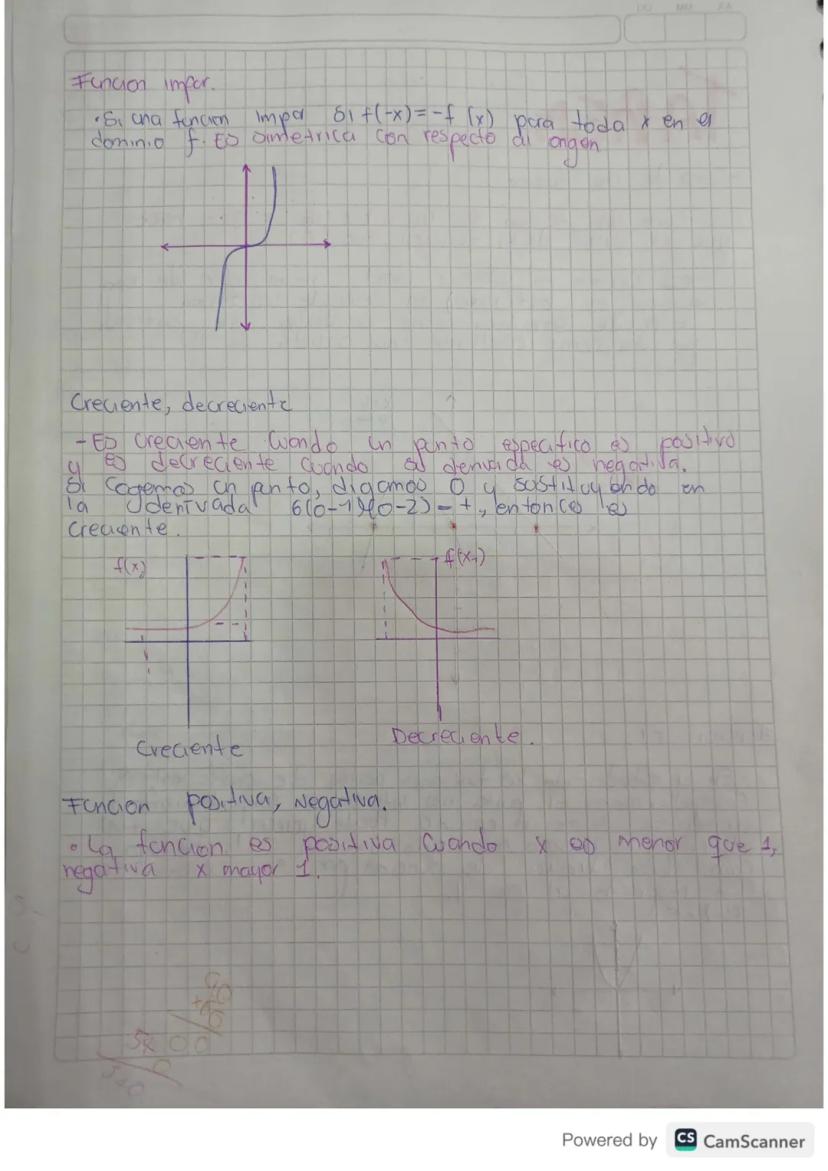 Función impar.
• Si una función impar si f(-x) = -f (x) para toda x en el
dominio f. Es simetrica con respecto al origen
Creciente, decreciente
- Es creciente cuando un punto especifico es positivo
y es decreciente cuando su derivada es negativa.
Si cogemos un punto, digamos 0 y sustituyendo en
la derivada 6(0-1)(0-2) = +, entonces es
creciente.
f(x)
f(x)
Creciente
Decreciente.
Función positiva, Negativa.
• La función es positiva cuando x es menor que 1,
negativa x mayor 1.
Powered by CS CamScanner